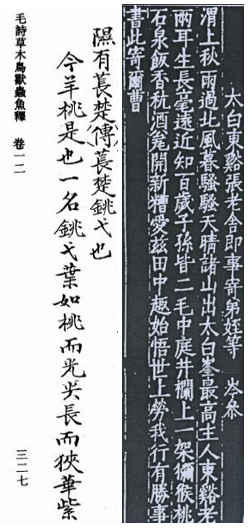 太白東谿張老舍即事寄弟姪等　岑參
渭上秋雨過北風暮騷騷天晴諸山出太白峯最高主人東谿老
兩耳生長毫遠近知百歲子孫皆二毛中庭井欄上一架獼猴桃
石泉飯香秔酒瓮開新糟愛茲田中趣始悟世上勞我行有勝事
書此寄爾曹
隰有萇楚傳萇楚銚弋也
今羊桃是也一名銚弋葉如桃而光尖長而狹華紫
毛詩草木鳥獸蟲魚釋　卷一二
三二七